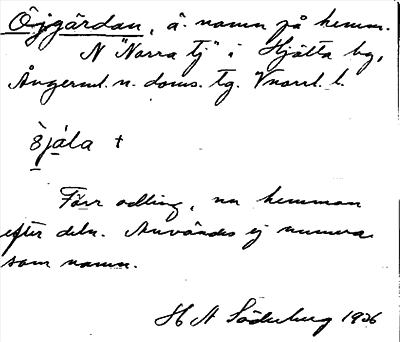 Öjgärdan, ä. namn på hemm.
N "Norra tj" i Hjälta by,
Ångerml. n. doms. tg. Vnorrl. l.
öjála +
Förr odling, nu hemman
efter deln. Användes ej numera
som namn.
H A Söderberg 1926